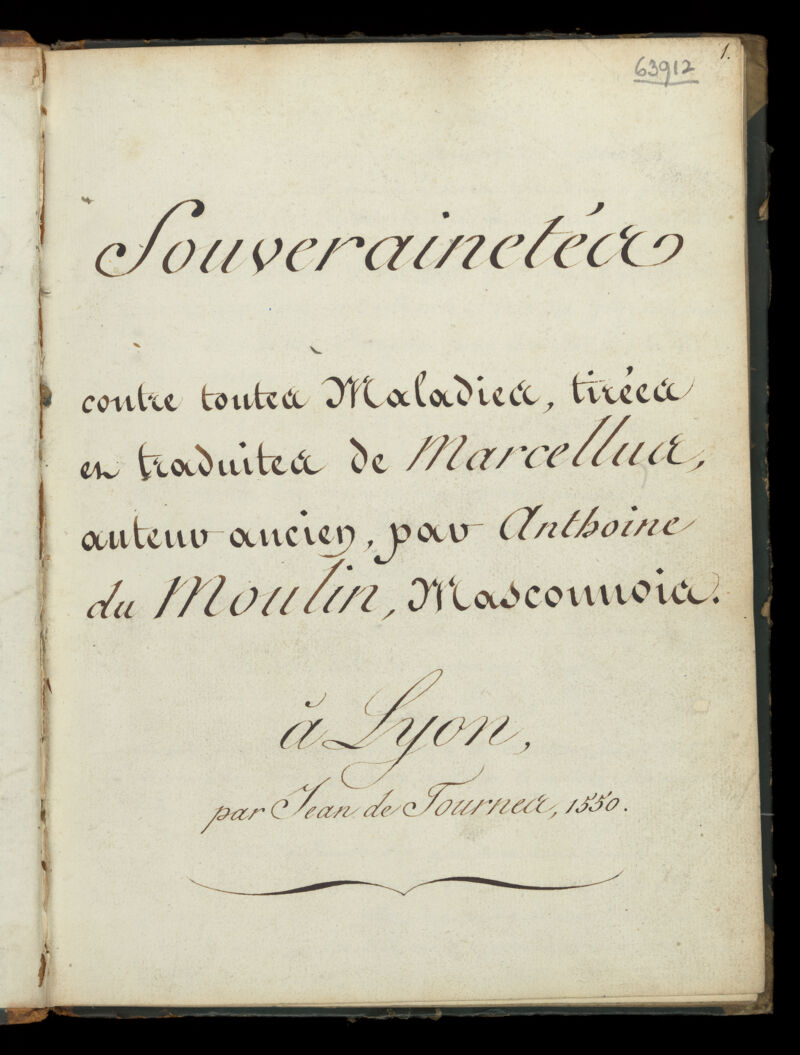 63912
1.
Souverainetés
contre toutes Maladies, tirées
et traduites de Marcellus,
auteur ancien, par Anthoine
du Moulin, Masconnois.
à Lyon,
par Jean de Tournes, 1550.